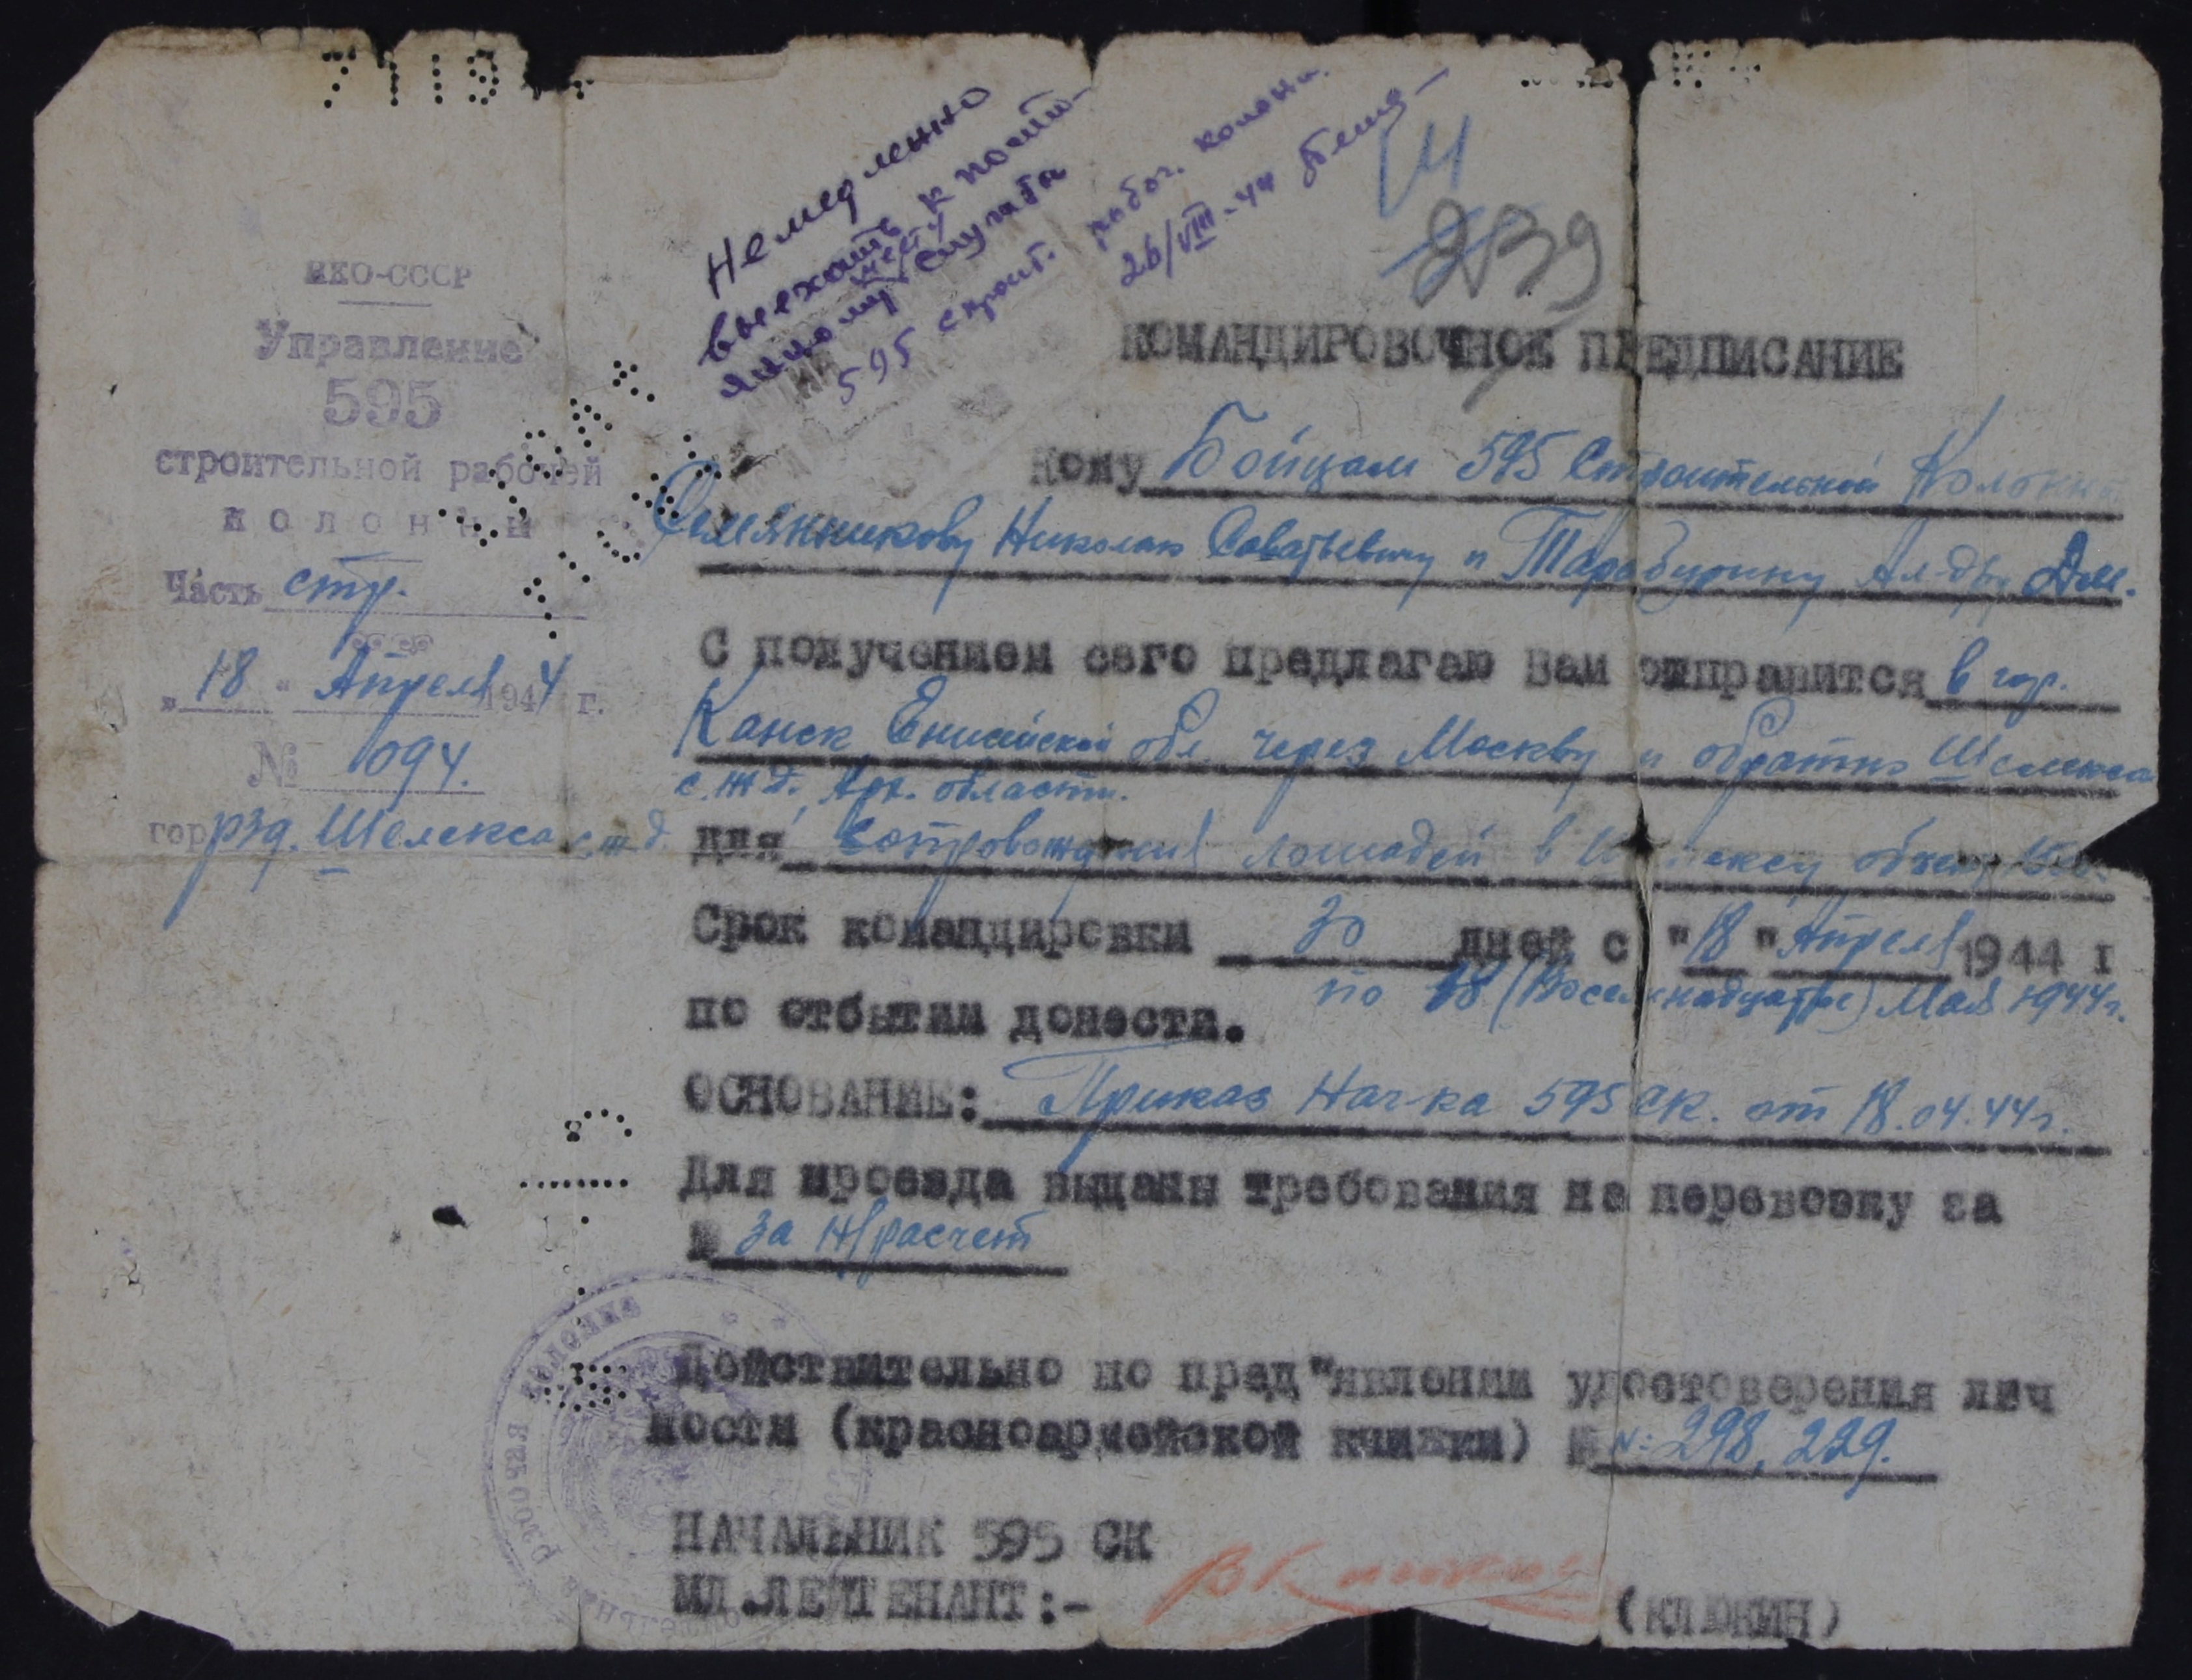 Немедленно
выехать к посто-
янному месту службы
595 строит. рабоч. колонн.
26/VIII-44
14
239
НКО-СССР
Управление
595
строительной рабочей
колонны
Часть стр.
"18" Апреля 1944 г.
№ 1094.
гор. рзд. Шелекса с.ж.д.
КОМАНДИРОВОЧНОЕ ПРЕДПИСАНИЕ
Кому Бойцам 595 Строительной Колонны
Семянникову Николаю Саватьевичу и Тарабурину Ал-дру Дм.
С получением сего предлагаю Вам отправится в гор.
Канск Енисейской обл. через Москву и обратно Шелекса
с.ж.д. Арх. области.
для Сопровождения лошадей в
Срок командировки 30 дней с "18" Апреля 1944 г
по 18 (Восемнадцатое) Мая 1944г.
по отбытии донести.
ОСНОВАНИЕ: Приказ Нач-ка 595 СК. от 18.04.44г.
Для проезда выданы требования на перевозку за
№ за н/расчет
Действительно по пред"явлении удостоверения лич
ности (красноармейской книжки) № №: 298, 229.
НАЧАЛЬНИК 595 СК
МЛ.ЛЕЙТЕНАНТ:- (КЛЮКИН)